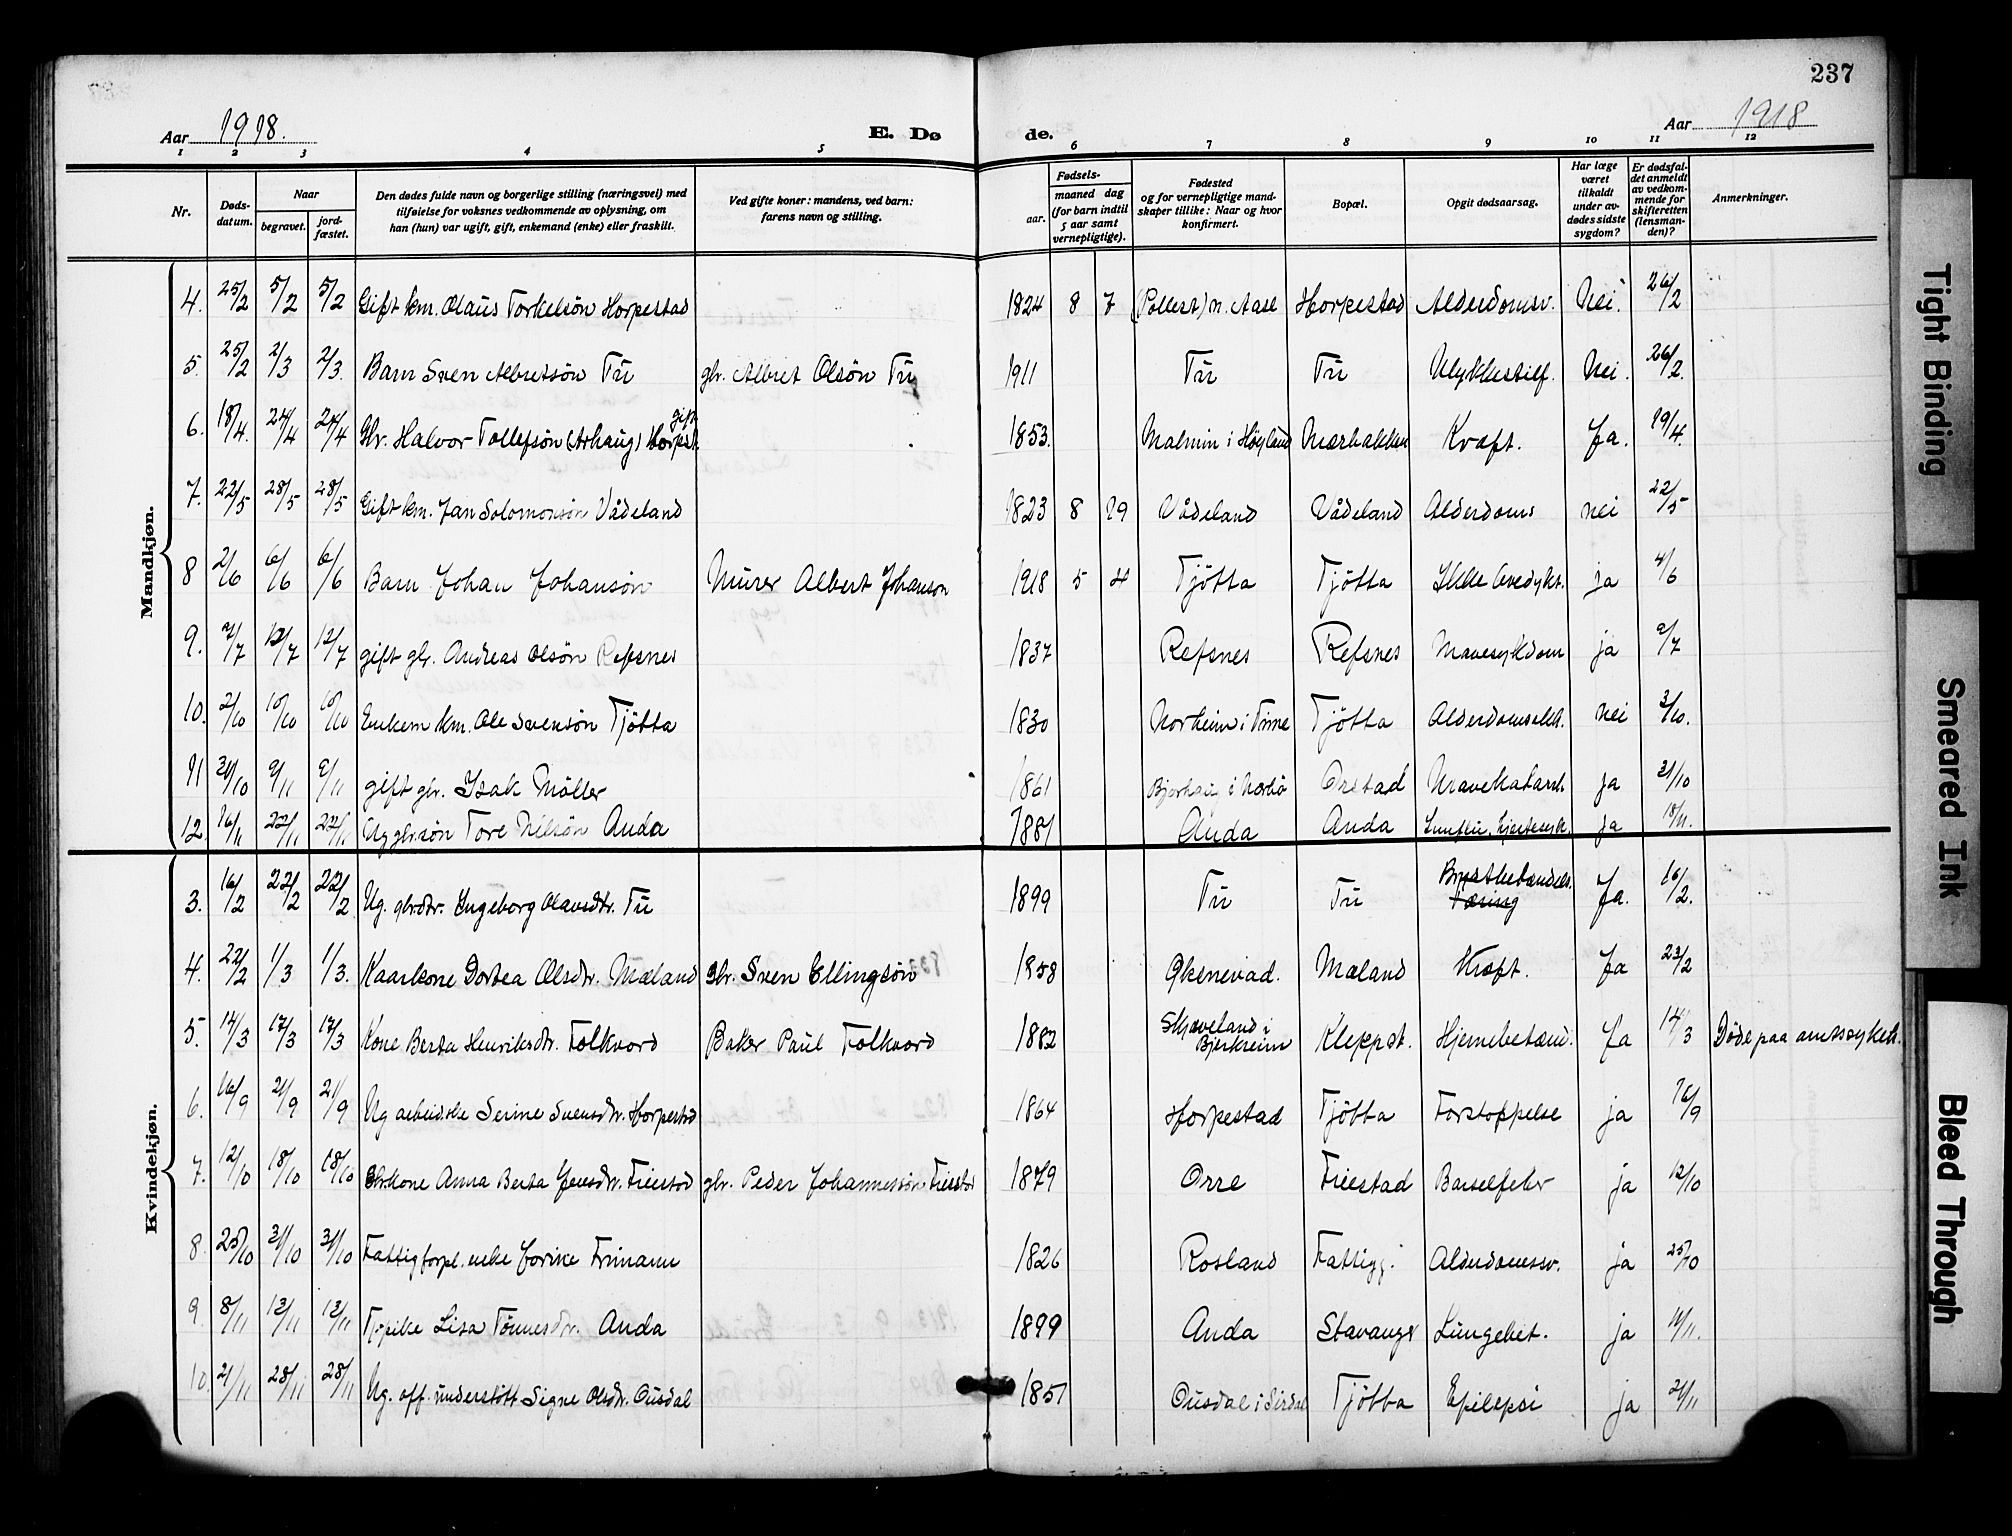 237
Aar 1918.
E. Dø
de.
Aar 1918
1 2 3 4 5 6 7 8 9 10 11 12
Nr.
Døds-
datum.
Naar
begravet.
jord-
fæstet.
Den dødes fulde navn og borgerlige stilling (næringsvei) med
tilføielse for voksnes vedkommende av oplysning, om
han (hun) var ugift, gift, enkemand (enke) eller fraskilt.
Ved gifte koner: mandens, ved barn:
farens navn og stilling.
Fødsels-
aar.
maaned dag
(for barn indtil
5 aar samt
vernepligtige).
Fødested
og for vernepligtige mand-
skaper tillike: Naar og hvor
konfirmert.
Bopæl.
Opgit dødsaarsag.
Har læge
været
tilkaldt
under av-
dødes sidste
sygdom?
Er dødsfal-
det anmeldt
av vedkom-
mende for
skifteretten
(lensman-
den)?
Anmerkninger.
Mandkjøn.
4. 25/2 5/2 5/2 Gift km. Olaus Torkelsøn Horpestad 1824 8 7 (Pollest) n. Aase Horpestad Alderdomsv. Nei. 26/2
5. 25/2 2/3 2/3. Barn Sven Albretsøn Tu gbr. Albret Olsøn Tu 1911 Tu Tu Ulykkestilf. Nei. 26/2.
6. 18/4. 24/4 24/4 Gbr. Halvor Tollefsøn (Arhaug) Horpest. gift 1853. Malmin i Høyland Nærbakken Kræft. Ja. 19/4.
7. 22/5 28/5 28/5 Gift km. Jan Solomonsøn Vådeland 1823 8 29 Vådeland Vådeland Alderdoms nei 22/5
8 2/6 6/6 6/6 Barn Johan Johansøn Murer Albert Johanson 1918 5 4 Tjøtta Tjøtta Ikke ja 4/6
9. 7/7 12/7 12/7 gift gbr. Andreas Olsøn Refsnes 1837 Refsnes Refsnes Mavesykdom ja 9/7
10. 2/10 10/10 10/10 Enkem km. Ole Svensøn Tjøtta 1830 Norheim i Time Tjøtta nei 3/10.
11 31/10 9/11 9/11 gift gbr. Isak Møller 1861 Bjorhaug i Nærbø Orstad Mavekatarrh. ja 31/10
12. 16/11 22/11 22/11 Ug gbr.søn Tore Nilsøn Anda 1881 Anda Anda hjertesyk. ja 18/11.
Kvindekjøn.
3. 16/2 22/2 22/2 Ug. gbrdtr. Ingeborg Olavsdtr. Tu 1899 Tu Tu Brystbetændels. Tæring Ja. 16/2.
4. 22/2 1/3 1/3. Kaarkone Dortea Olsdtr. Mæland Gbr. Sven Ellingsøn 1858 Øksnevad. Mæland Kræft. Ja 23/2
5. 14/3 17/3 17/3 Kone Berta Henriksdtr. Folkvord Baker Paul Folkvord 1882 Skjæveland i Bjerkreim Kleppst. Hjernebetænd. Ja 14/3 Døde paa amtssykeh.
6. 16/9 21/9 21/9 Ug arbeidske Serine Svensdtr. Horpestad 1864 Horpestad Tjøtta Forstoppelse ja 16/9
7. 12/10 18/10 18/10 Gbrkone Anna Berta Jensdtr. Friestad gbr. Peder Johannessøn Friestad 1879 Orre Friestad Barselfeber ja 12/10
8. 25/10 31/10 31/10 Fattigforpl. enke Frimann 1826 Rosland Fattigg. Alderdomssv. ja 25/10
9. 8/11 13/11 13/11 Tjpike Lisa Tønnesdtr. Anda 1899 Anda Stavanger Lungebet. ja 11/11.
10. 21/11 28/11 28/11 Ug. off. understøtt Signe Olsdtr. Ousdal 1851 Ousdal i Sirdal Tjøtta Epilepsi ja 21/11
Tight Binding
Smeared Ink
Bleed Through